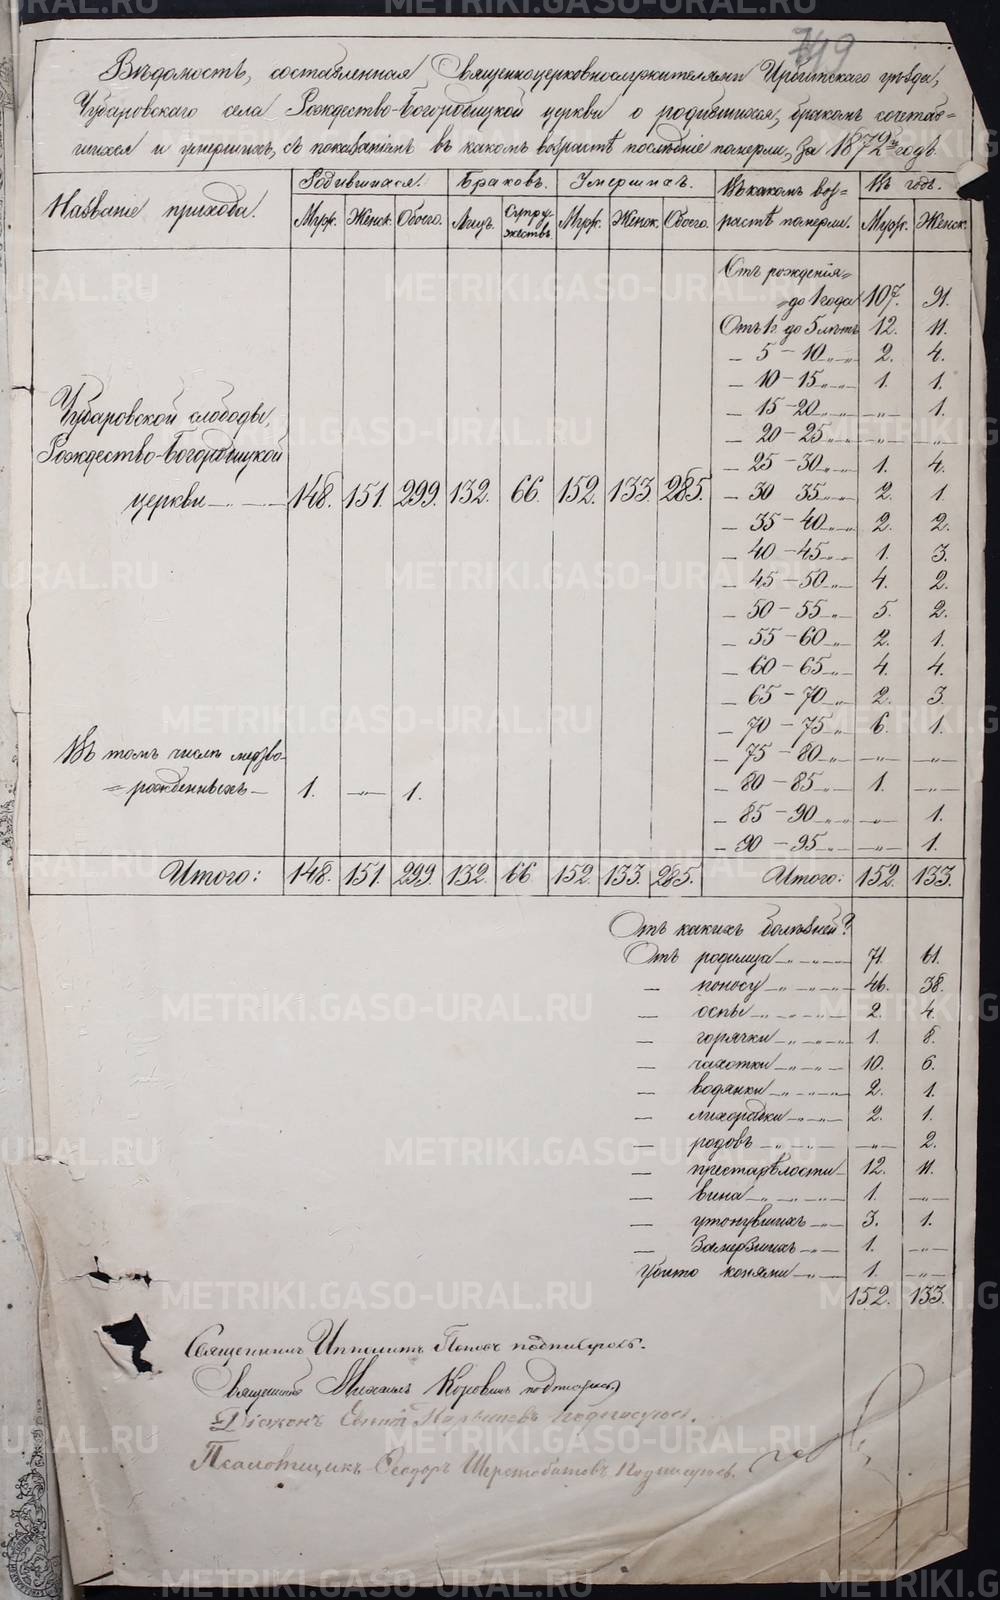 749
Вѣдомость, составленная Священноцерковнослужителями Ирбитскаго уѣзда,
Чубаровскаго села Рождество-Богородицкой церкви о родившихся, бракомъ сочетав-
шихся и умершихъ, съ показаніемъ въ какомъ возрастѣ послѣдніе померли, за 1872й годъ.
Названіе прихода. Родившихся. Браковъ. Умершихъ. Въ какомъ воз- Въ годъ.
Муж. Женск. Обоего. Лицъ. Супру- Муж. Женск. Обоего. растѣ померли. Муж. Женск.
жествъ.
Отъ рожденія=
=до 1 года 107. 91.
Отъ 1 г. до 5 лѣтъ 12. 11.
— 5 — 10 „ 2. 4.
— 10 — 15 „ 1. 1.
— 15 — 20 „ —„— 1.
— 20 — 25 „ —„— —„—
— 25 — 30 „ 1. 4.
Чубаровской слободы,
Рождество-Богородицкой
церкви 148. 151. 299. 132. 66. 152. 133. 285. — 30 35 „ 2. 1.
— 35 — 40 „ 2. 2.
— 40 — 45 „ 1. 3.
— 45 — 50 „ 4. 2.
— 50 — 55 „ 5. 2.
— 55 — 60 „ 2. 1.
— 60 — 65 „ 4. 4.
— 65 — 70 „ 2. 3.
— 70 — 75 „ 6. 1.
— 75 — 80 „ —„— —„—
Въ томъ числѣ мертво-
=рожденныхъ — 1. —„— 1. — 80 — 85 „ 1. —„—
— 85 — 90 „ —„— 1.
— 90 — 95 „ —„— 1.
Итого: 148. 151. 299. 132. 66 152. 133. 285. Итого: 152. 133.
Отъ какихъ болѣзней?
Отъ родимца —„— 71. 61.
— поносу —„— 46. 38.
— оспы —„— 2. 4.
— горячки —„— 1. 8.
— чахотки —„— 10. 6.
— водянки —„— 2. 1.
— лихорадки —„— 2. 1.
— родовъ —„— —„— 2.
— престарѣлости — 12. 11.
— вина —„— 1. —„—
— утонувшихъ —„— 3. 1.
— Замерзшихъ —„— 1. —„—
Убито конями —„— 1. —„—
152. 133.
Священникъ Ипполитъ Поповъ подписуюсь.
Священникъ Михаилъ Коровинъ
Діаконъ Подписуюсь.
Псаломщикъ Ѳеодоръ Шерстобитовъ Подписуюсь.
METRIKI.GASO-URAL.RU